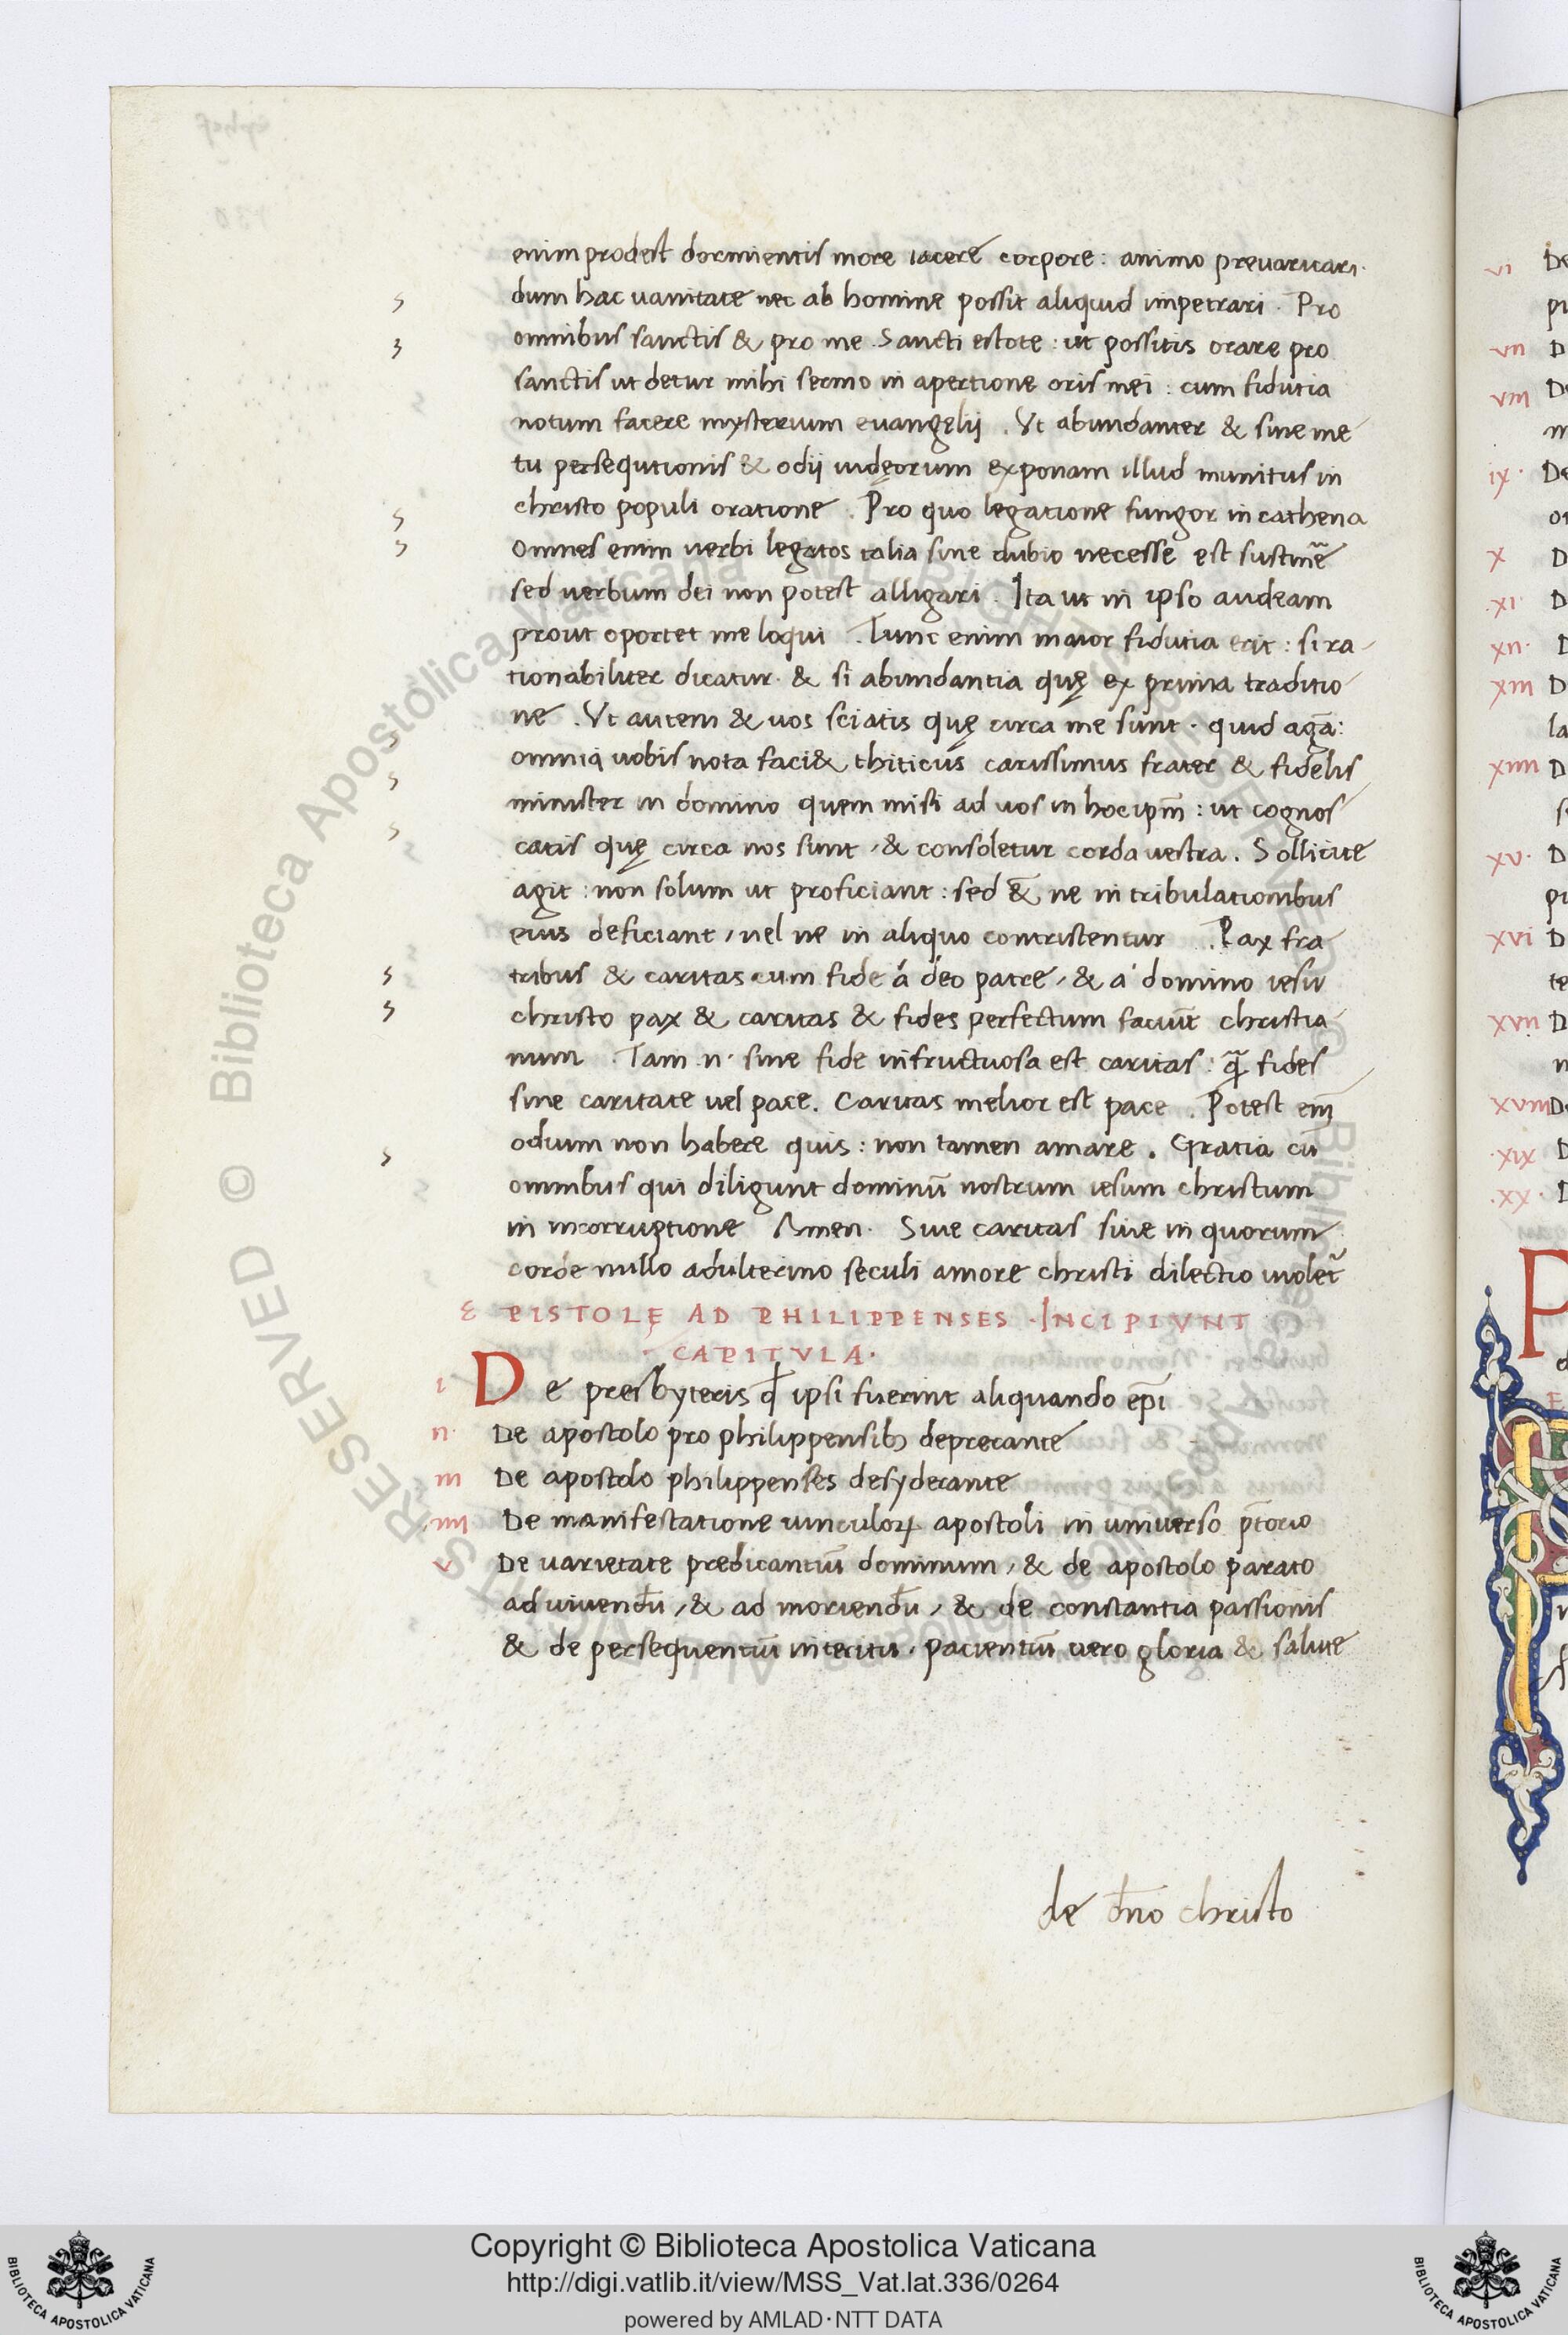 enim prodest dormientis more iacere corpore: animo preuaricari.
dum hac uanitate nec ab homine possit aliquid impetrari. Pro
omnibus sanctis & pro me. Sancti estote: ut possitis orare pro
sanctis ut detur mihi sermo in apertione oris mei: cum fidutia
notum facere mysterium euangelij. Vt abundanter & sine me
tu persequtionis & odij iudęorum exponam illud munitus in
christo populi oratione. Pro quo legatione fungor in cathena
omnes enim uerbi legatos talia sine dubio necesse est sustinē
sed uerbum dei non potest alligari. Ita ut in ipso audeam
prout oportet me loqui. Tunc enim maior fidutia erit: si ra-
tionabiliter dicatur. & si abundantia quę ex prima traditio
ne. Vt autem & uos sciatis quę circa me sunt. quid agā:
omnia uobis nota faci& thiticus carissimus frater & fidelis
minister in domino quem misi ad uos in hoc ipm̄: ut cognos
catis quę circa nos sunt, & consoletur corda uestra. Sollicite
agit: non solum ut proficiant: sed &̄ ne in tribulationibus
eius deficiant, uel ne in aliquo contristentur. Pax fra
tribus & caritas cum fide á deo patre, & a' domino iesu
christo pax & caritas & fides perfectum faciūt christia
num. Tam .n. sine fide infructuosa est caritas: q̄ fides
sine caritate uel pace. Caritas melior est pace. Potest eīm
odium non habere quis: non tamen amare. Gratia cū
omnibus qui diligunt dominū nostrum iesum christum
in incorruptione Amen. Siue caritas siue in quorum
corde nullo adulterino seculi amore christi dilectio uiolet̄
EPISTOLĘ AD PHILIPPENSES. INCIPIVNT
. CAPITVLA.
i De presbyteris qđ ipsi fuerint aliquando ep̄i
ii De apostolo pro philippensibꝫ deprecante
iii De apostolo philippenses desyderante
iiii De manifestatione uinculoꝝ apostoli in uniuerso p̄torio
v De uarietate predicantiū dominum, & de apostolo parato
ad uiuendū, & ad moriendū, & de constantia passionis
& de persequentiū interitu. patientiū uero gloria & salute
de dn̄o christo
vi De
vii D
viii De
ix. De
x D
xi D
xii. D
xiii D
la
xiiii D
xv. D
xvi D
te
xvii D
xviii De
xix D
.xx. D
P
© Biblioteca Apostolica Vaticana
ALL RIGHTS RESERVED
Copyright © Biblioteca Apostolica Vaticana
http://digi.vatlib.it/view/MSS_Vat.lat.336/0264
powered by AMLAD·NTT DATA
BIBLIOTECA APOSTOLICA VATICANA
BIBLIOTECA APOSTOLICA VATICANA